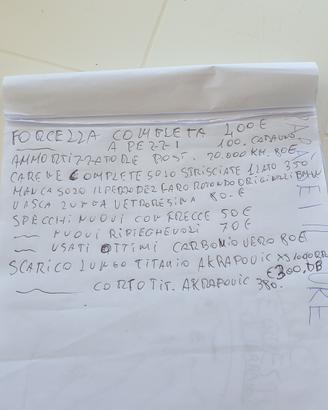 FORCELLA COMPLETA 400€
A PEZZI 100. CADAUNO
AMMORTIZZATORE POST. 20.000 KM. 80€
CARENE COMPLETE SOLO STRISCIATE 1 LATO 350
MANCA SOLO IL PEZZO DEL FARO ROTONDO ORIGINALI BMW
VASCA LUNGA VETRORESINA 80.€
SPECCHI NUOVI CON FRECCE 50€
~ NUOVI RIPIEGHEVOLI 70€
~ USATI OTTIMI CARBONIO VERO 80€
SCARICO LUNGO TITANIO AKRAPOVIC XS1000RR
€300. DB
~ CORTO TIT. AKRAPOVIC 380.